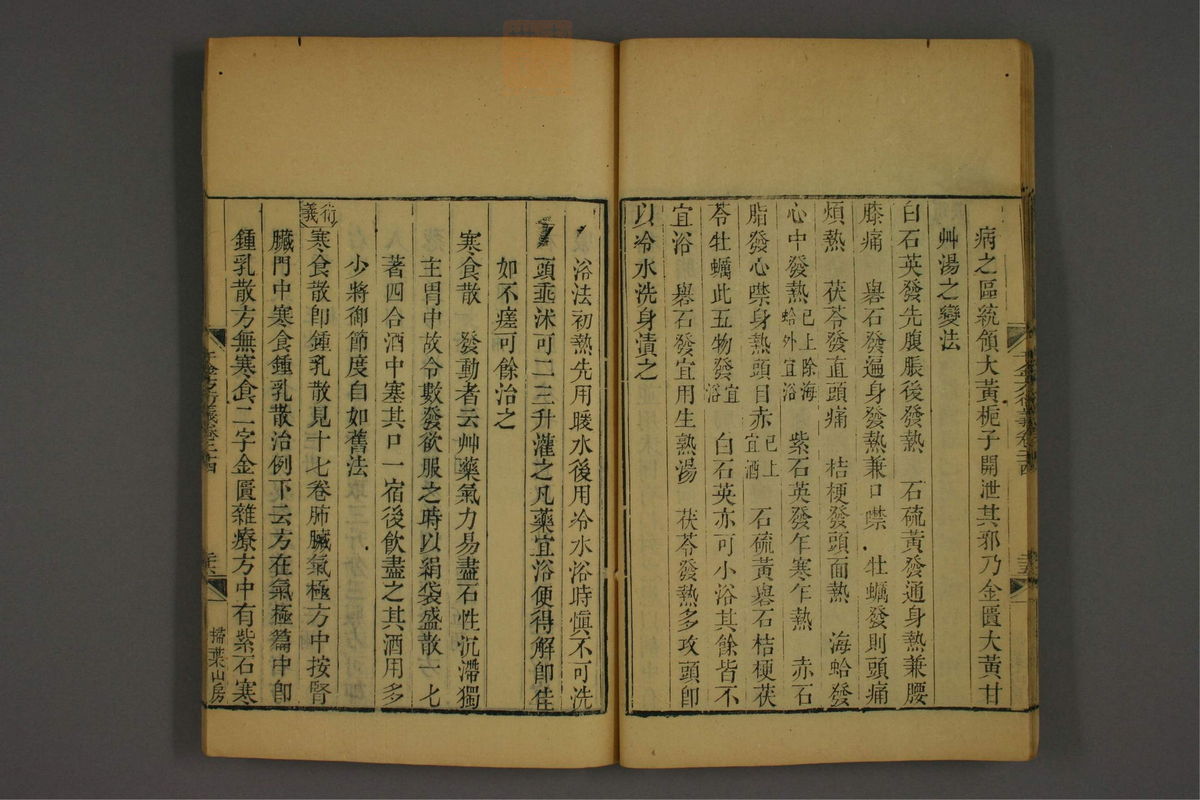 病之區統領大黃梔子開泄其邪乃金匱大黃甘
艸湯之變法
白石英發先腹脹後發熱　石硫黃發通身熱兼腰
膝痛　礜石發遍身發熱兼口噤　牡蠣發則頭痛
煩熱　茯苓發直頭痛　桔梗發頭面熱　海蛤發
心中發熱已上除海蛤外宜浴　紫石英發乍寒乍熱　赤石
脂發心噤身熱頭目赤已上宜酒　石硫黃礜石桔梗茯
苓牡蠣此五物發宜浴　白石英亦可小浴其餘皆不
宜浴　礜石發宜用生熟湯　茯苓發熱多攻頭卽
以冷水洗身漬之
浴法初熱先用暖水後用冷水浴時愼不可洗
頭垂沐可二三升灌之凡藥宜浴便得解卽佳
如不瘥可餘治之
寒食散　發動者云艸藥氣力易盡石性沉滯獨
主胃中故令數發欲服之時以絹袋盛散一七
著四合酒中塞其口一宿後飮盡之其酒用多
少將御節度自如舊法
衍義寒食散卽鍾乳散見十七卷肺臟氣極方中按腎
臟門中寒食鍾乳散治例下云方在氣極篇中卽
鍾乳散方無寒食二字金匱雜療方中有紫石寒
千金方衍義卷二十四
掃葉山房